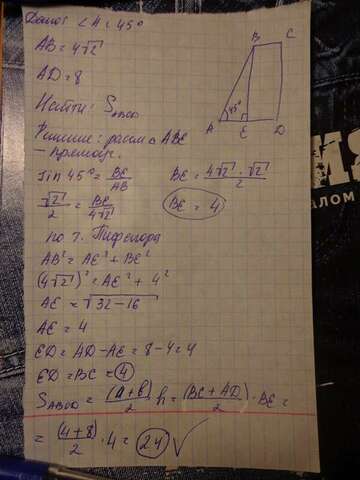 Дано: ∠A = 45°
AB = 4√2
AD = 8
Найти: S_ABCD
Решение: рассм △ ABE
– прямоуг.
B C
45°
A E D
sin 45° = BE/AB
BE = (4√2 · √2)/2
√2/2 = BE/4√2
BE = 4
по т. Пифагора
AB² = AE² + BE²
(4√2)² = AE² + 4²
AE = √32 – 16
AE = 4
ED = AD – AE = 8 – 4 = 4
ED = BC = 4
S_ABCD = (a + b)/2 · h = (BC + AD)/2 · BE =
= (4 + 8)/2 · 4 = 24 ✓
ИЯ
АЛОМ